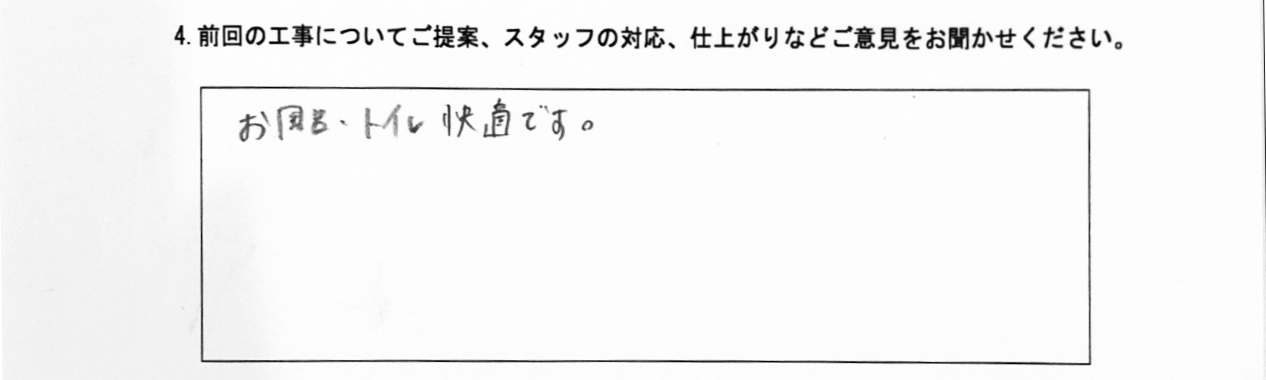 4. 前回の工事についてご提案、スタッフの対応、仕上がりなどご意見をお聞かせください。
お風呂・トイレ 快適です。